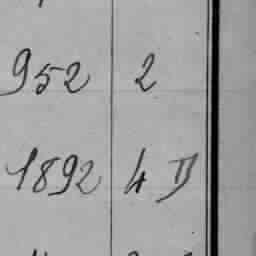 952 2
1892 4 D